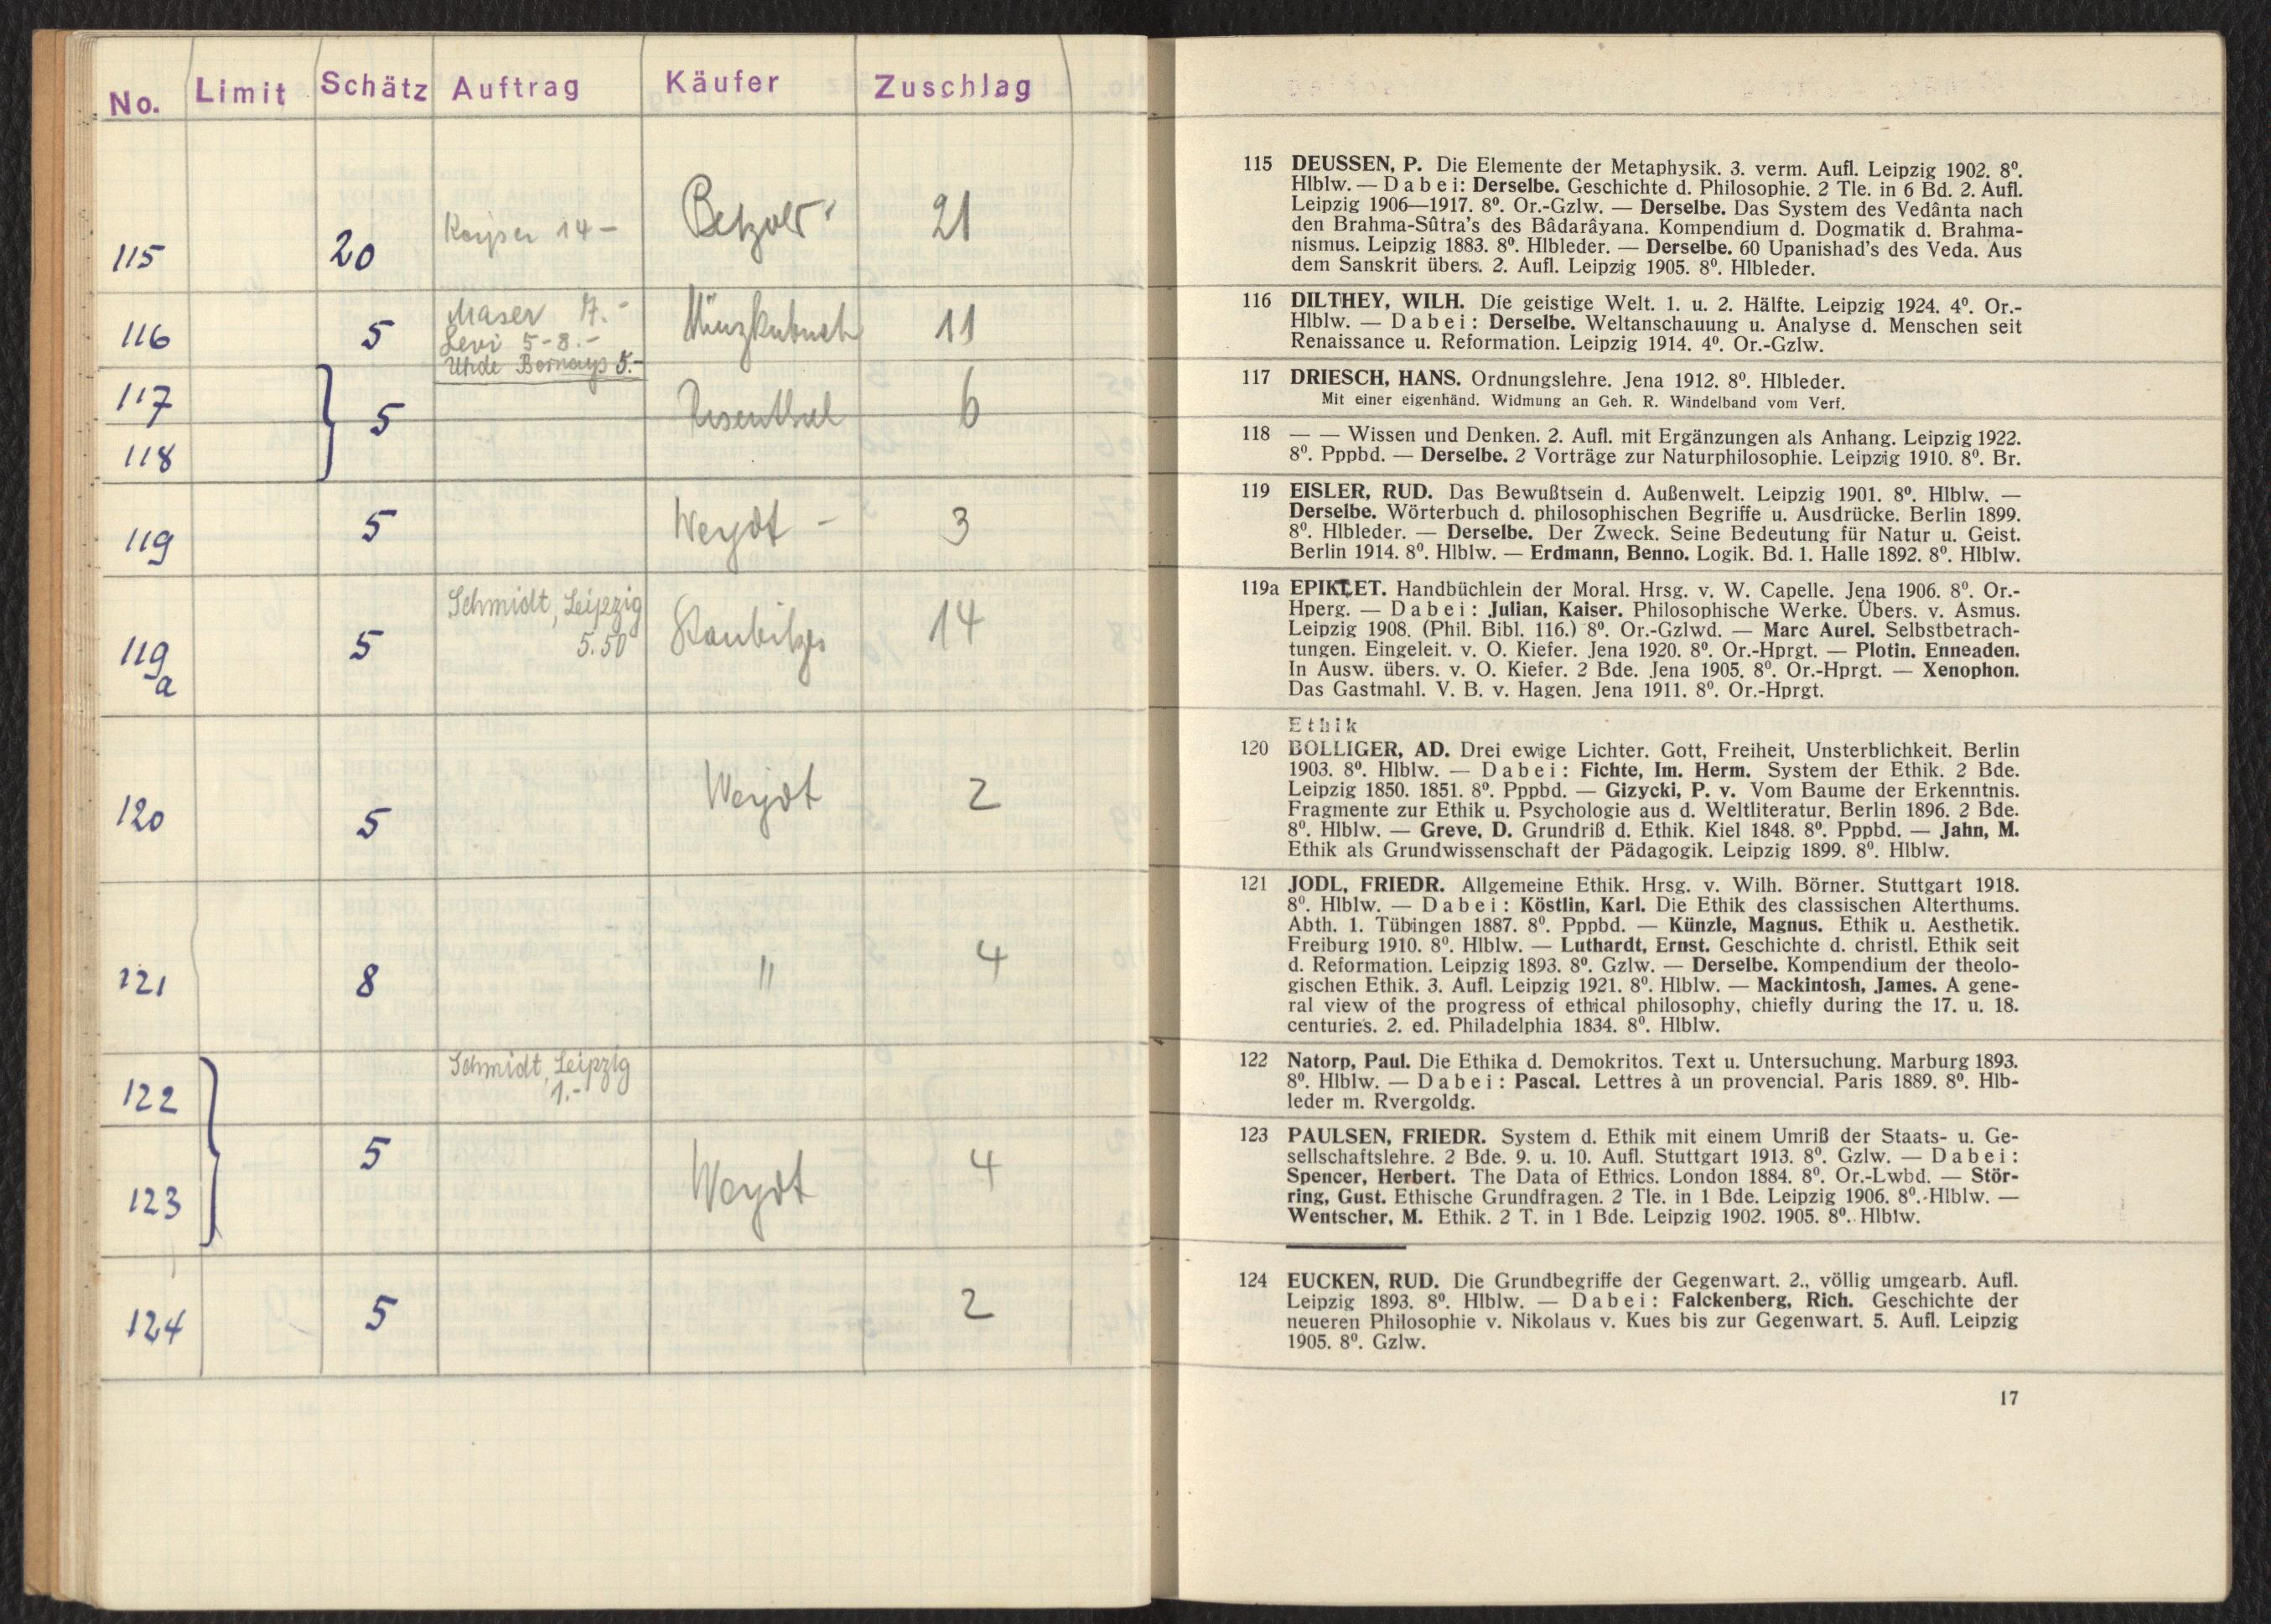 No. Limit Schätz Auftrag Käufer Zuschlag
115 20 Kayser 14 – 21
116 5 Maser 17.– 11
Levi 5-8.–
Uhde Bernays 5.–
117
118 5 Rosenthal 6
119 5 Weydt – 3
119a 5 Schmidt, Leipzig 14
5.50
120 5 Weydt 2
121 8 " 4
122 Schmidt, Leipzig
1.–
123 5 Weydt 4
124 5 2
115 DEUSSEN, P. Die Elemente der Metaphysik. 3. verm. Aufl. Leipzig 1902. 8⁰.
Hlblw. — Dabei: Derselbe. Geschichte d. Philosophie. 2 Tle. in 6 Bd. 2. Aufl.
Leipzig 1906—1917. 8⁰. Or.-Gzlw. — Derselbe. Das System des Vedânta nach
den Brahma-Sûtra's des Bâdarâyana. Kompendium d. Dogmatik d. Brahma-
nismus. Leipzig 1883. 8⁰. Hlbleder. — Derselbe. 60 Upanishad's des Veda. Aus
dem Sanskrit übers. 2. Aufl. Leipzig 1905. 8⁰. Hlbleder.
116 DILTHEY, WILH. Die geistige Welt. 1. u. 2. Hälfte. Leipzig 1924. 4⁰. Or.-
Hlblw. — Dabei: Derselbe. Weltanschauung u. Analyse d. Menschen seit
Renaissance u. Reformation. Leipzig 1914. 4⁰. Or.-Gzlw.
117 DRIESCH, HANS. Ordnungslehre. Jena 1912. 8⁰. Hlbleder.
Mit einer eigenhänd. Widmung an Geh. R. Windelband vom Verf.
118 — — Wissen und Denken. 2. Aufl. mit Ergänzungen als Anhang. Leipzig 1922.
8⁰. Pppbd. — Derselbe. 2 Vorträge zur Naturphilosophie. Leipzig 1910. 8⁰. Br.
119 EISLER, RUD. Das Bewußtsein d. Außenwelt. Leipzig 1901. 8⁰. Hlblw. —
Derselbe. Wörterbuch d. philosophischen Begriffe u. Ausdrücke. Berlin 1899.
8⁰. Hlbleder. — Derselbe. Der Zweck. Seine Bedeutung für Natur u. Geist.
Berlin 1914. 8⁰. Hlblw. — Erdmann, Benno. Logik. Bd. 1. Halle 1892. 8⁰. Hlblw.
119a EPIKTET. Handbüchlein der Moral. Hrsg. v. W. Capelle. Jena 1906. 8⁰. Or.-
Hperg. — Dabei: Julian, Kaiser. Philosophische Werke. Übers. v. Asmus.
Leipzig 1908. (Phil. Bibl. 116.) 8⁰. Or.-Gzlwd. — Marc Aurel. Selbstbetrach-
tungen. Eingeleit. v. O. Kiefer. Jena 1920. 8⁰. Or.-Hprgt. — Plotin. Enneaden.
In Ausw. übers. v. O. Kiefer. 2 Bde. Jena 1905. 8⁰. Or.-Hprgt. — Xenophon.
Das Gastmahl. V. B. v. Hagen. Jena 1911. 8⁰. Or.-Hprgt.
Ethik
120 BOLLIGER, AD. Drei ewige Lichter. Gott, Freiheit, Unsterblichkeit. Berlin
1903. 8⁰. Hlblw. — Dabei: Fichte, Im. Herm. System der Ethik. 2 Bde.
Leipzig 1850. 1851. 8⁰. Pppbd. — Gizycki, P. v. Vom Baume der Erkenntnis.
Fragmente zur Ethik u. Psychologie aus d. Weltliteratur. Berlin 1896. 2 Bde.
8⁰. Hlblw. — Greve, D. Grundriß d. Ethik. Kiel 1848. 8⁰. Pppbd. — Jahn, M.
Ethik als Grundwissenschaft der Pädagogik. Leipzig 1899. 8⁰. Hlblw.
121 JODL, FRIEDR. Allgemeine Ethik. Hrsg. v. Wilh. Börner. Stuttgart 1918.
8⁰. Hlblw. — Dabei: Köstlin, Karl. Die Ethik des classischen Alterthums.
Abth. 1. Tübingen 1887. 8⁰. Pppbd. — Künzle, Magnus. Ethik u. Aesthetik.
Freiburg 1910. 8⁰. Hlblw. — Luthardt, Ernst. Geschichte d. christl. Ethik seit
d. Reformation. Leipzig 1893. 8⁰. Gzlw. — Derselbe. Kompendium der theolo-
gischen Ethik. 3. Aufl. Leipzig 1921. 8⁰. Hlblw. — Mackintosh, James. A gene-
ral view of the progress of ethical philosophy, chiefly during the 17. u. 18.
centuries. 2. ed. Philadelphia 1834. 8⁰. Hlblw.
122 Natorp, Paul. Die Ethika d. Demokritos. Text u. Untersuchung. Marburg 1893.
8⁰. Hlblw. — Dabei: Pascal. Lettres à un provencial. Paris 1889. 8⁰. Hlb-
leder m. Rvergoldg.
123 PAULSEN, FRIEDR. System d. Ethik mit einem Umriß der Staats- u. Ge-
sellschaftslehre. 2 Bde. 9. u. 10. Aufl. Stuttgart 1913. 8⁰. Gzlw. — Dabei:
Spencer, Herbert. The Data of Ethics. London 1884. 8⁰. Or.-Lwbd. — Stör-
ring, Gust. Ethische Grundfragen. 2 Tle. in 1 Bde. Leipzig 1906. 8⁰. Hlblw. —
Wentscher, M. Ethik. 2 T. in 1 Bde. Leipzig 1902. 1905. 8⁰. Hlblw.
124 EUCKEN, RUD. Die Grundbegriffe der Gegenwart. 2., völlig umgearb. Aufl.
Leipzig 1893. 8⁰. Hlblw. — Dabei: Falckenberg, Rich. Geschichte der
neueren Philosophie v. Nikolaus v. Kues bis zur Gegenwart. 5. Aufl. Leipzig
1905. 8⁰. Gzlw.
17